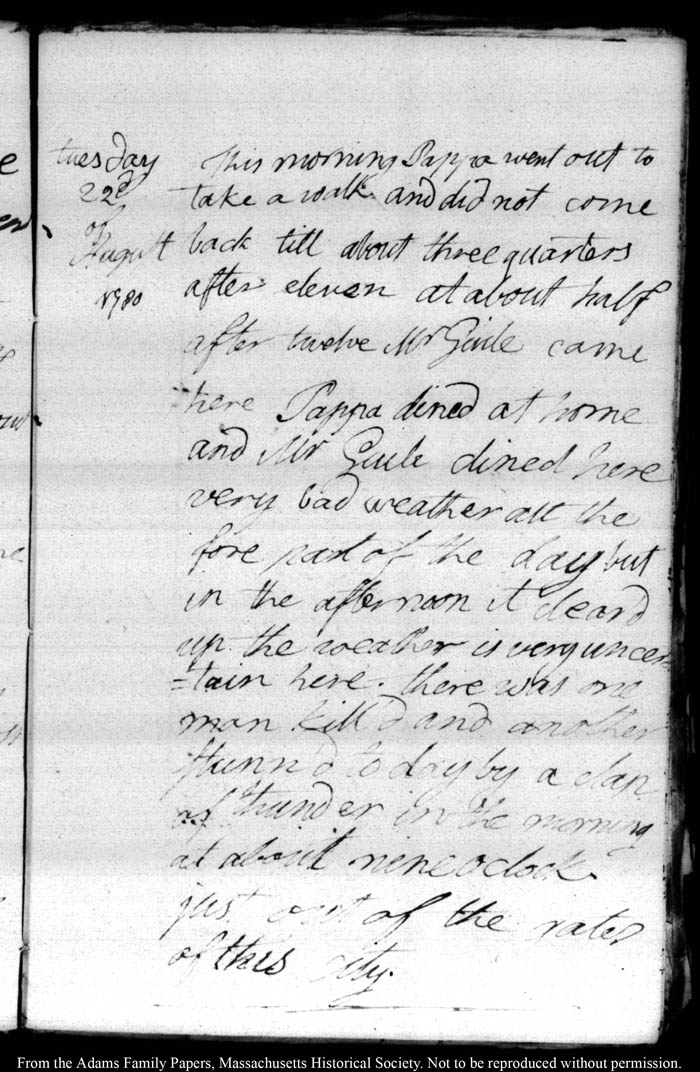 tuesday
22d
of
August
1780
This morning Pappa went out to
take a walk and did not come
back till about three quarters
after eleven at about half
after twelve Mr Guile came
here Pappa dined at home
and Mr Guile dined here
very bad weather all the
fore part of the day but
in the afternoon it cleard
up the weather is very uncer
=tain here. there was one
man kill'd and another
stunn'd to day by a clap
of thunder in the morning
at about nine oclock
just out of the gates
of this city.
From the Adams Family Papers, Massachusetts Historical Society. Not to be reproduced without permission.